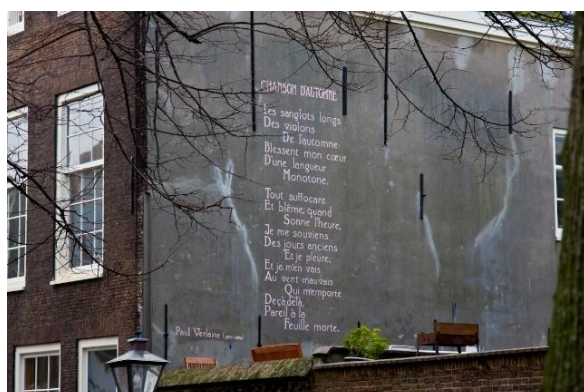 CHANSON D'AUTOMNE
Les sanglots longs
Des violons
De l'automne
Blessent mon cœur
D'une langueur
Monotone.
Tout suffocant
Et blême, quand
Sonne l'heure,
Je me souviens
Des jours anciens
Et je pleure;
Et je m'en vais
Au vent mauvais
Qui m'emporte
Deçà, delà,
Pareil à la
Feuille morte.
Paul Verlaine